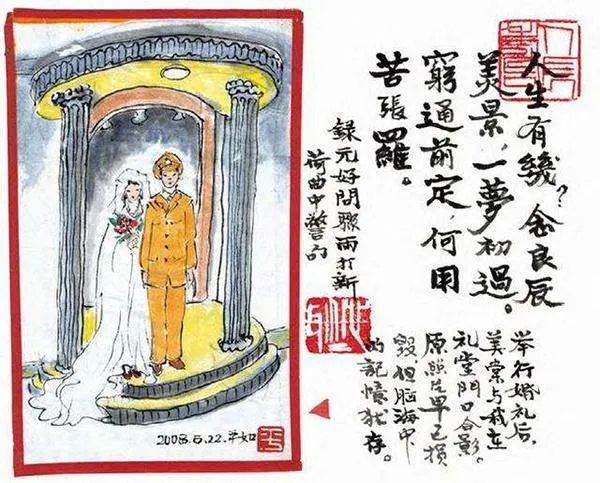 人生有幾?念良辰
美景,一夢初過。
窮通前定,何用
苦張羅。
錄元好問驟雨打新
荷曲中警句
举行婚礼后,
美棠与我在
礼堂門口合影。
原照片早已損
毀,但脑海中
的記憶犹存。
2008.5.22.平如
平